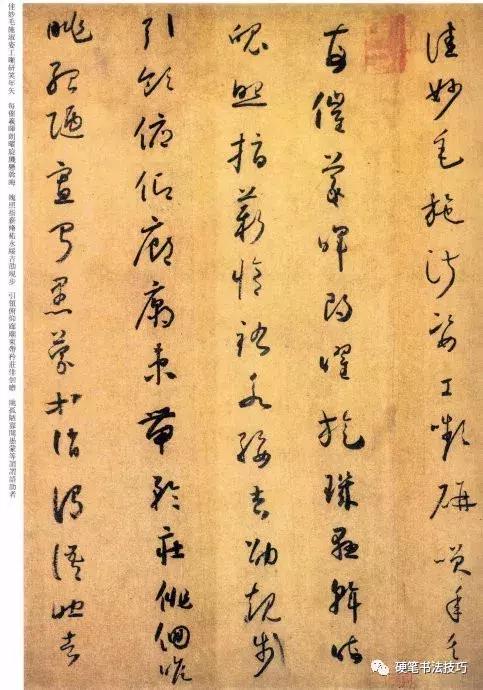 佳妙毛施淑姿工嚬研笑年矢
每催羲暉朗曜旋璣懸斡晦
魄照指薪脩祜永綏吉劭規步
引領俯仰廊廟束帶矜莊徘徊瞻
眺孤陋寡聞愚蒙等誚謂語助者
佳妙毛施淑姿工嚬研笑年矢 每催羲暉朗曜旋璣懸斡晦 魄照指薪脩祜永綏吉劭規步 引領俯仰廊廟束帶矜莊徘徊瞻 眺孤陋寡聞愚蒙等誚謂語助者
硬笔书法技巧